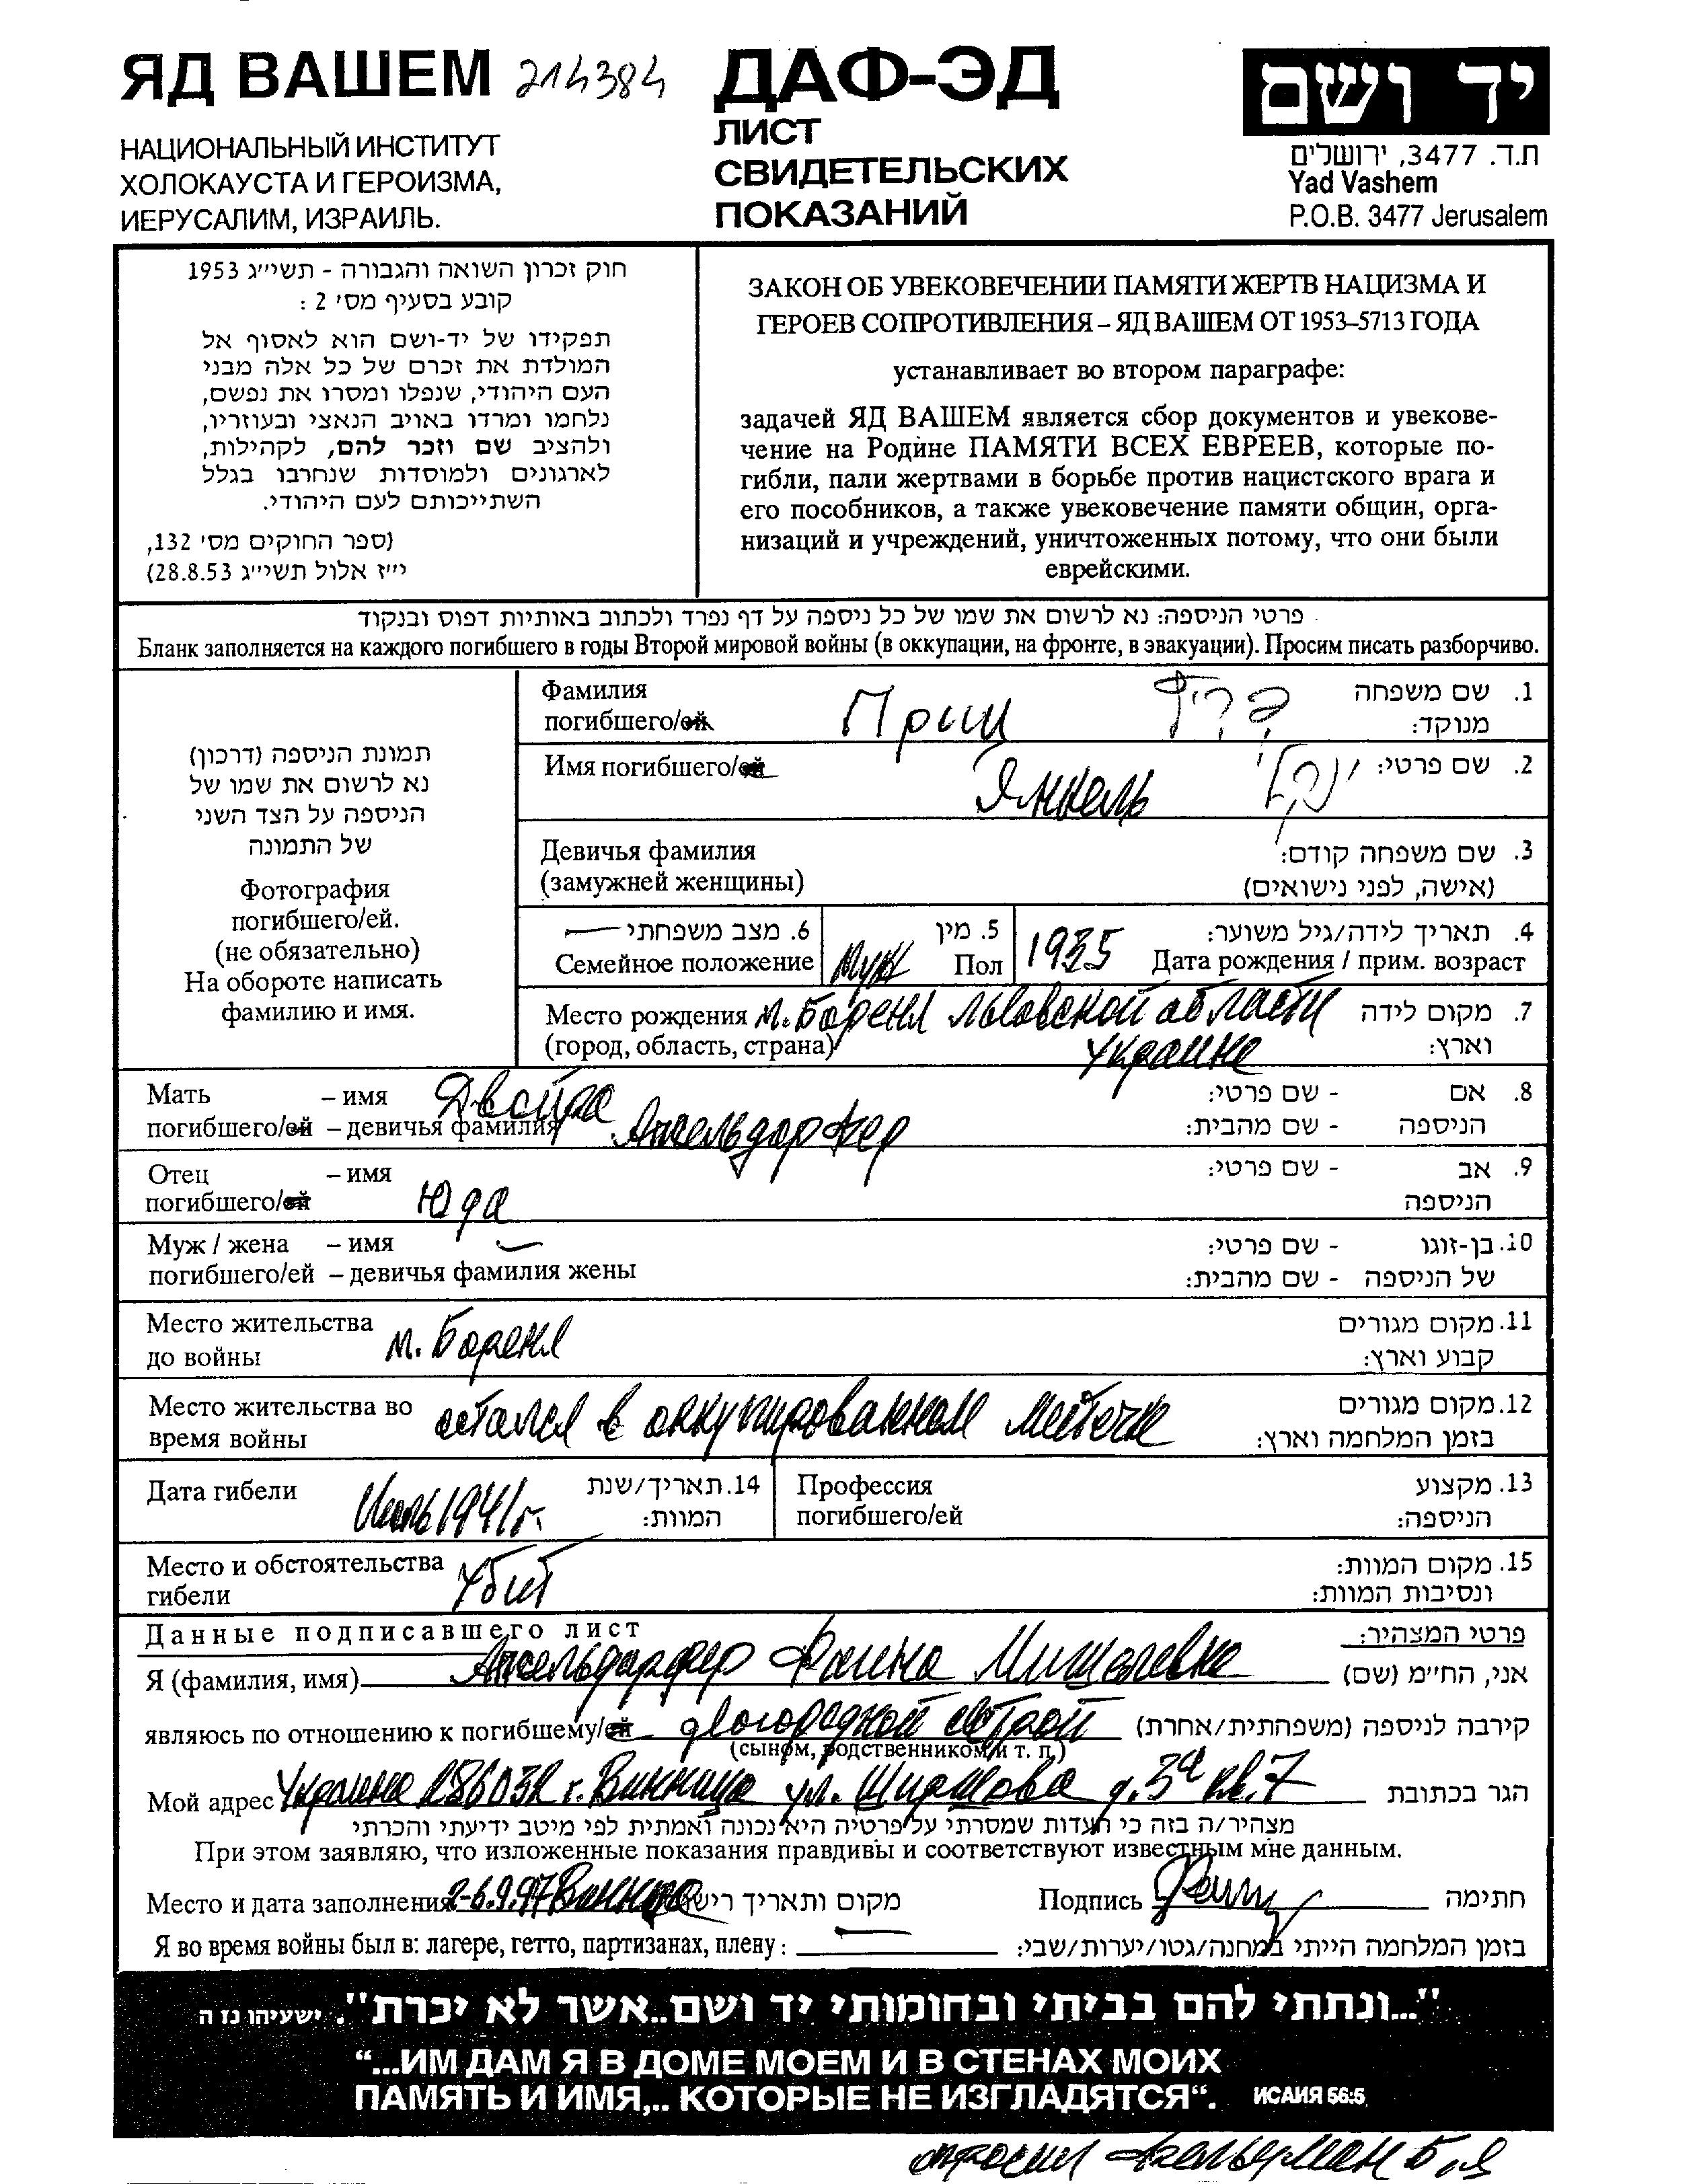 ЯД ВАШЕМ 214384
НАЦИОНАЛЬНЫЙ ИНСТИТУТ
ХОЛОКАУСТА И ГЕРОИЗМА,
ИЕРУСАЛИМ, ИЗРАИЛЬ.
ДАФ-ЭД
ЛИСТ
СВИДЕТЕЛЬСКИХ
ПОКАЗАНИЙ
יד ושם
ת.ד. 3477, ירושלים
Yad Vashem
P.O.B. 3477 Jerusalem
חוק זכרון השואה והגבורה - תשי״ג 1953
קובע בסעיף מס׳ 2 :
תפקידו של יד-ושם הוא לאסוף אל
המולדת את זכרם של כל אלה מבני
העם היהודי, שנפלו ומסרו את נפשם,
נלחמו ומרדו באויב הנאצי ובעוזריו,
ולהציב שם וזכר להם, לקהילות,
לארגונים ולמוסדות שנחרבו בגלל
השתייכותם לעם היהודי.
(ספר החוקים מס׳ 132,
י״ז אלול תשי״ג 28.8.53)
ЗАКОН ОБ УВЕКОВЕЧЕНИИ ПАМЯТИ ЖЕРТВ НАЦИЗМА И
ГЕРОЕВ СОПРОТИВЛЕНИЯ – ЯД ВАШЕМ ОТ 1953–5713 ГОДА
устанавливает во втором параграфе:
задачей ЯД ВАШЕМ является сбор документов и увекове-
чение на Родине ПАМЯТИ ВСЕХ ЕВРЕЕВ, которые по-
гибли, пали жертвами в борьбе против нацистского врага и
его пособников, а также увековечение памяти общин, орга-
низаций и учреждений, уничтоженных потому, что они были
еврейскими.
פרטי הניספה: נא לרשום את שמו של כל ניספה על דף נפרד ולכתוב באותיות דפוס ובנקוד
Бланк заполняется на каждого погибшего в годы Второй мировой войны (в оккупации, на фронте, в эвакуации). Просим писать разборчиво.
תמונת הניספה (דרכון)
נא לרשום את שמו של
הניספה על הצד השני
של התמונה
Фотография
погибшего/ей.
(не обязательно)
На обороте написать
фамилию и имя.
Фамилия 1. שם משפחה
погибшего/ей Приш מנוקד:
Имя погибшего/ей Янкель ינקל 2. שם פרטי:
Девичья фамилия 3. שם משפחה קודם:
(замужней женщины) (אישה, לפני נישואים)
6. מצב משפחתי — 5. מין 4. תאריך לידה/גיל משוער:
Семейное положение муж Пол 1935 Дата рождения / прим. возраст
Место рождения м. Бореня Львовской области 7. מקום לידה
(город, область, страна) Украине וארץ:
Мать – имя Двойра 8. אם - שם פרטי:
погибшего/ей – девичья фамилия Аксельдорфер הניספה - שם מהבית:
Отец – имя 9. אב - שם פרטי:
погибшего/ей Юда הניספה
Муж / жена – имя — 10. בן-זוגו - שם פרטי:
погибшего/ей – девичья фамилия жены של הניספה - שם מהבית:
Место жительства 11. מקום מגורים
до войны м. Бореня קבוע וארץ:
Место жительства во остался в оккупированном местечке 12. מקום מגורים
время войны בזמן המלחמה וארץ:
Дата гибели 1941г. 14. תאריך/שנת
המוות:
Профессия 13. מקצוע
погибшего/ей הניספה:
Место и обстоятельства 15. מקום המוות:
гибели Убит ונסיבות המוות:
Данные подписавшего лист פרטי המצהיר:
Я (фамилия, имя) Аксельдорфер Фаина אני, הח״מ (שם)
являюсь по отношению к погибшему/ей двоюродной сестрой קירבה לניספה (משפחתית/אחרת)
(сыном, родственником и т. п.)
Мой адрес Украина г. Винница ул. Ширшова д. 3а кв. 7 הגר בכתובת
מצהיר/ה בזה כי העדות שמסרתי על פרטיה היא נכונה ואמתית לפי מיטב ידיעתי והכרתי
При этом заявляю, что изложенные показания правдивы и соответствуют известным мне данным.
Место и дата заполнения 6.9.97 Винница מקום ותאריך Подпись חתימה
Я во время войны был в: лагере, гетто, партизанах, плену : — בזמן המלחמה הייתי במחנה/גטו/יערות/שבי:
"...ונתתי להם בביתי ובחומותי יד ושם..אשר לא יכרת". ישעיהו נז ה
“...ИМ ДАМ Я В ДОМЕ МОЕМ И В СТЕНАХ МОИХ
ПАМЯТЬ И ИМЯ,.. КОТОРЫЕ НЕ ИЗГЛАДЯТСЯ“. ИСАИЯ 56:5